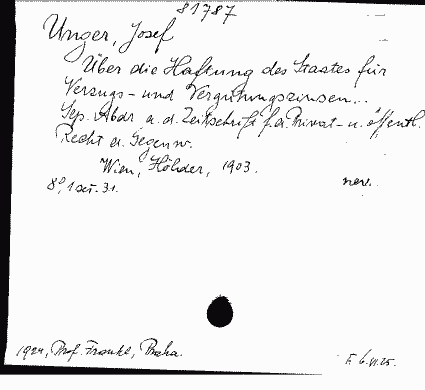 81787
Unger, Josef
Über die Haftung des Staates für
Verzugs- und Vergütungszinsen...
Sep. Abdr. a. d. Zeitschrift f. d. Privat- u. öffentl.
Recht d. Gegenw.
Wien, Hölder, 1903.
8°, 1 set. 31.
nev.
1924, Prof. Frankl, Praha.
F. 6.VI.25.